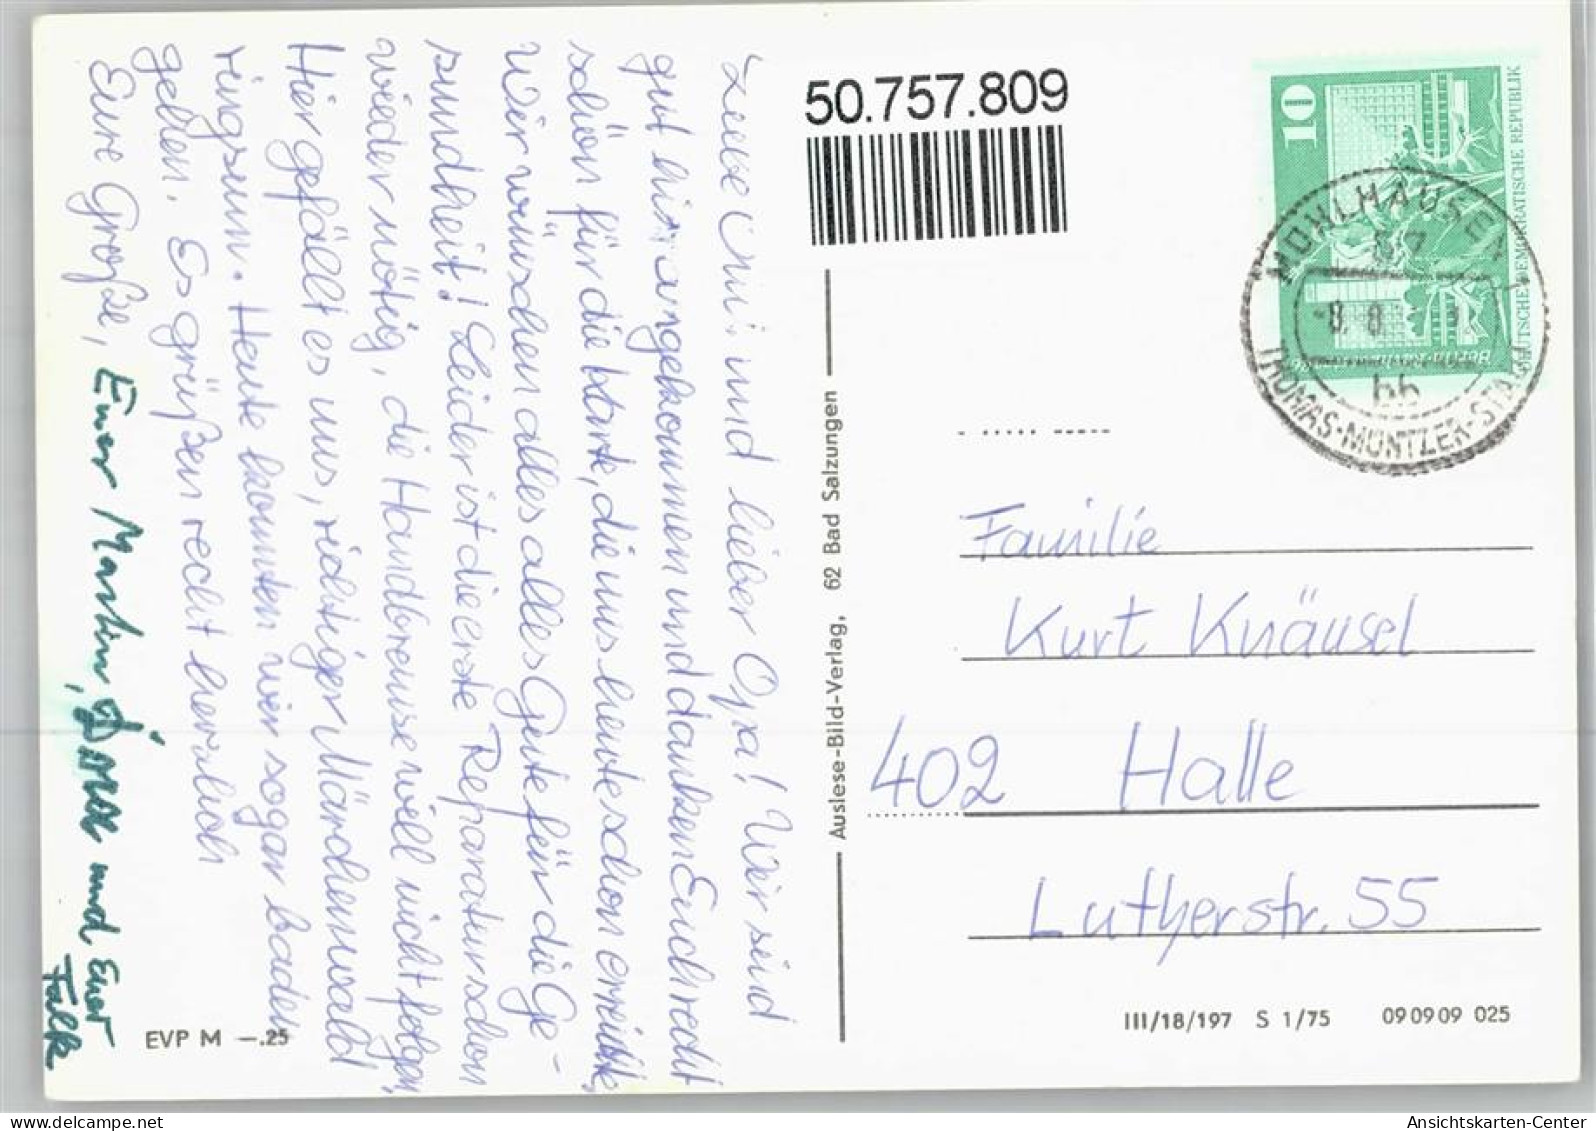 Liebe Omi und lieber Opa! Wir sind
gut hier angekommen und danken Euch recht
schön für die Karte, die uns heute schon erreichte.
Wir wünschen alles alles Gute für die Ge-
sundheit! Leider ist die erste Reparatur schon
wieder nötig, die Handbremse will nicht folgen.
Hier gefällt es uns, richtiger Märchenwald
ringsum. Heute konnten wir sogar baden
gehen. Es grüßen recht herzlich
Eure Große, Euer Martin, und Euer
Falk
EVP M —.25
Auslese-Bild-Verlag, 62 Bad Salzungen
50.757.809
10
DEUTSCHE DEMOKRATISCHE REPUBLIK
MÜHLHAUSEN
-8. 8.
bb
THOMAS-MÜNTZER-STADT
Familie
Kurt Knäusel
402 Halle
Lutherstr. 55
III/18/197 S 1/75 09 09 09 025
AnsichtsKarten-Center